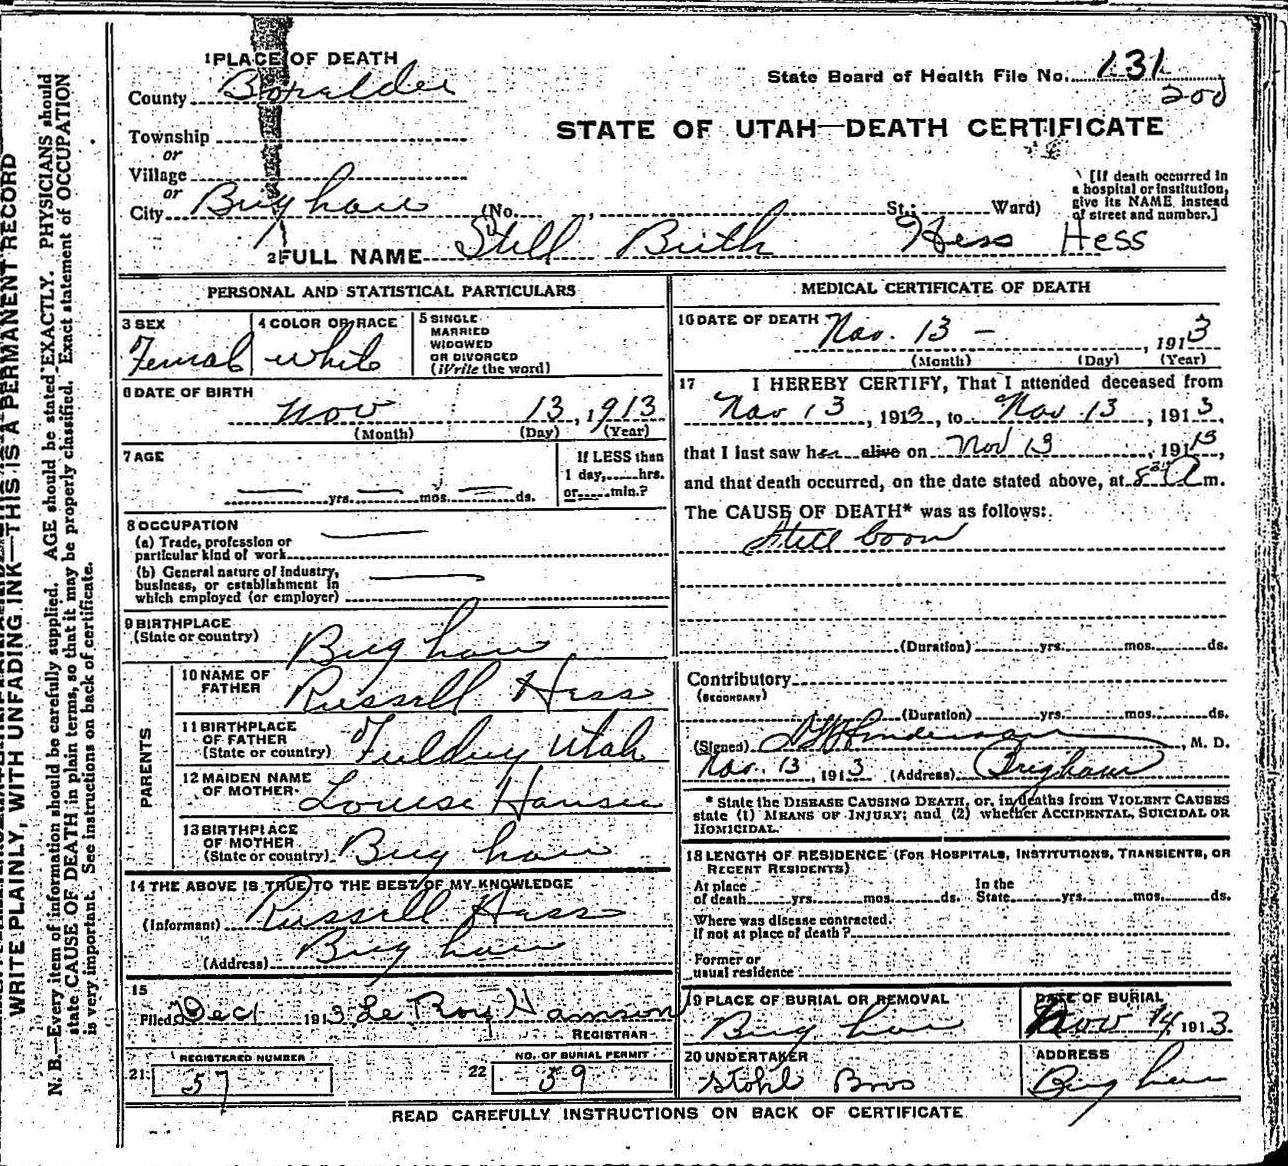 1 PLACE OF DEATH
County Boxelder
State Board of Health File No. 131
200
STATE OF UTAH—DEATH CERTIFICATE
Township
or
Village
or
City Brigham (No. , St.; Ward)
[If death occurred in a hospital or institution, give its NAME instead of street and number.]
2 FULL NAME Still Birth Hess Hess
PERSONAL AND STATISTICAL PARTICULARS
3 SEX Female
4 COLOR OR RACE White
5 SINGLE MARRIED WIDOWED OR DIVORCED (Write the word)
6 DATE OF BIRTH Nov 13, 1913
(Month) (Day) (Year)
7 AGE — yrs. — mos. — ds.
If LESS than 1 day, hrs. or min.?
8 OCCUPATION
(a) Trade, profession or particular kind of work —
(b) General nature of industry, business, or establishment in which employed (or employer) —
9 BIRTHPLACE (State or country) Brigham
PARENTS
10 NAME OF FATHER Russell Hess
11 BIRTHPLACE OF FATHER (State or country) Fielding Utah
12 MAIDEN NAME OF MOTHER Louise Hansen
13 BIRTHPLACE OF MOTHER (State or country) Brigham
14 THE ABOVE IS TRUE TO THE BEST OF MY KNOWLEDGE
(Informant) Russell Hess
(Address) Brigham
15
Filed Dec 1 1913 Le Roy
REGISTRAR
REGISTERED NUMBER
21 57
NO. OF BURIAL PERMIT
22 59
MEDICAL CERTIFICATE OF DEATH
16 DATE OF DEATH Nov. 13 — , 1913
(Month) (Day) (Year)
17 I HEREBY CERTIFY, That I attended deceased from
Nov 13, 1913, to Nov 13, 1913,
that I last saw her alive on Nov 13, 1913,
and that death occurred, on the date stated above, at 8 m.
The CAUSE OF DEATH* was as follows:
Still born
(Duration) yrs. mos. ds.
Contributory
(SECONDARY)
(Duration) yrs. mos. ds.
(Signed) , M. D.
Nov. 13, 1913 (Address) Brigham
* State the DISEASE CAUSING DEATH, or, in deaths from VIOLENT CAUSES
state (1) MEANS OF INJURY; and (2) whether ACCIDENTAL, SUICIDAL OR
HOMICIDAL.
18 LENGTH OF RESIDENCE (FOR HOSPITALS, INSTITUTIONS, TRANSIENTS, OR
RECENT RESIDENTS)
At place of death yrs. mos. ds. In the State yrs. mos. ds.
Where was disease contracted. If not at place of death?
Former or usual residence
19 PLACE OF BURIAL OR REMOVAL Brigham
DATE OF BURIAL Nov 14 1913.
20 UNDERTAKER Stohl Bros
ADDRESS Brigham
READ CAREFULLY INSTRUCTIONS ON BACK OF CERTIFICATE
WRITE PLAINLY, WITH UNFADING INK—THIS IS A PERMANENT RECORD
N. B.—Every item of information should be carefully supplied. AGE should be stated EXACTLY. PHYSICIANS should
state CAUSE OF DEATH in plain terms, so that it may be properly classified. Exact statement of OCCUPATION
is very important. See instructions on back of certificate.